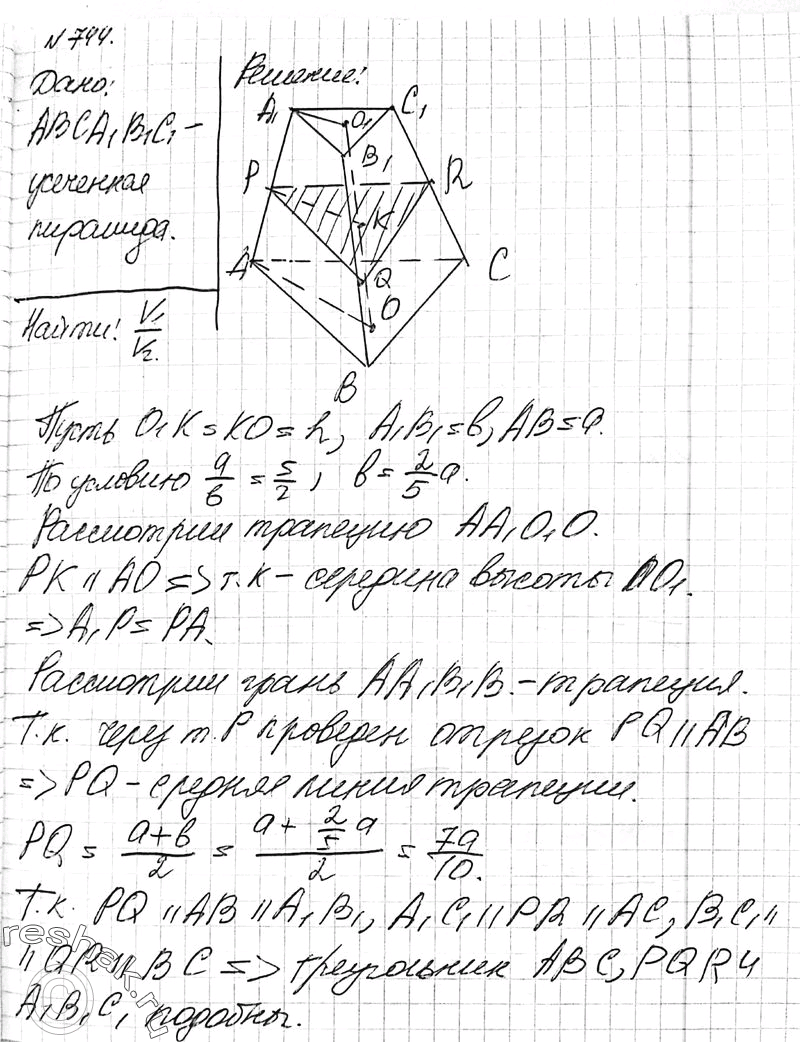 №744.
Дано:
ABCA₁B₁C₁ –
усеченная
пирамида.
Найти: V₁/V₂.
Решение:
A₁ C₁
O₁
B₁
P R
K
A C
Q
O
B
Пусть O₁K = KO = h, A₁B₁ = в, AB = a.
По условию a/в = 5/2, в = 2/5 a.
Рассмотрим трапецию AA₁O₁O.
PK ∥ AO => т.K – середина высоты OO₁.
=> A₁P = PA.
Рассмотрим грань AA₁B₁B – трапеция.
Т.к. через т.P проведен отрезок PQ ∥ AB
=> PQ – средняя линия трапеции.
PQ = (a+в)/2 = (a + 2/5 a)/2 = 7a/10.
Т.к. PQ ∥ AB ∥ A₁B₁, A₁C₁ ∥ PR ∥ AC, B₁C₁ ∥
∥ QR ∥ BC => треугольник ABC, PQR и
A₁B₁C₁ подобны.
reshak.ru